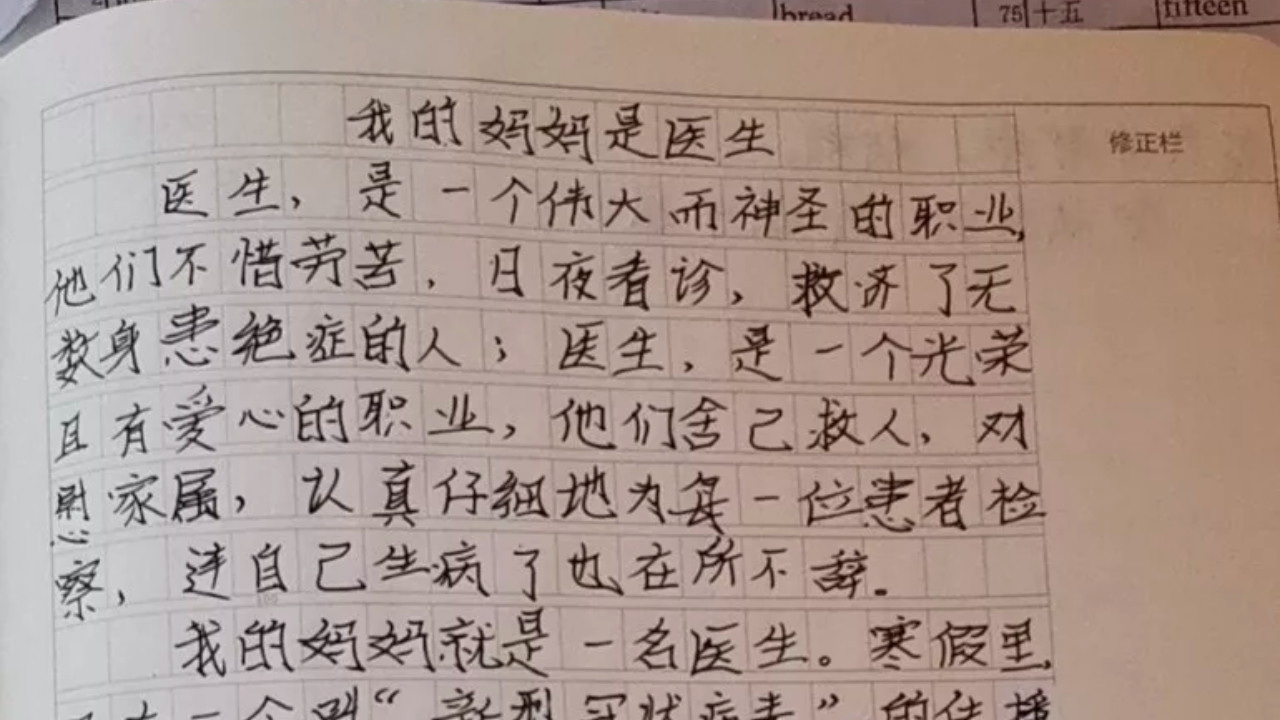 bread 75 十五 fifteen
我的妈妈是医生
修正栏
医生，是一个伟大而神圣的职业，
他们不惜劳苦，日夜看诊，救济了无
数身患绝症的人；医生，是一个光荣
且有爱心的职业，他们舍己救人，对
家属，认真仔细地为每一位患者检
察，连自己生病了也在所不辞。
我的妈妈就是一名医生。寒假里，
一个叫“新型冠状病毒”的传播